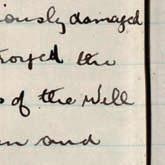 iously damaged
troyed the
s of the Well
en and